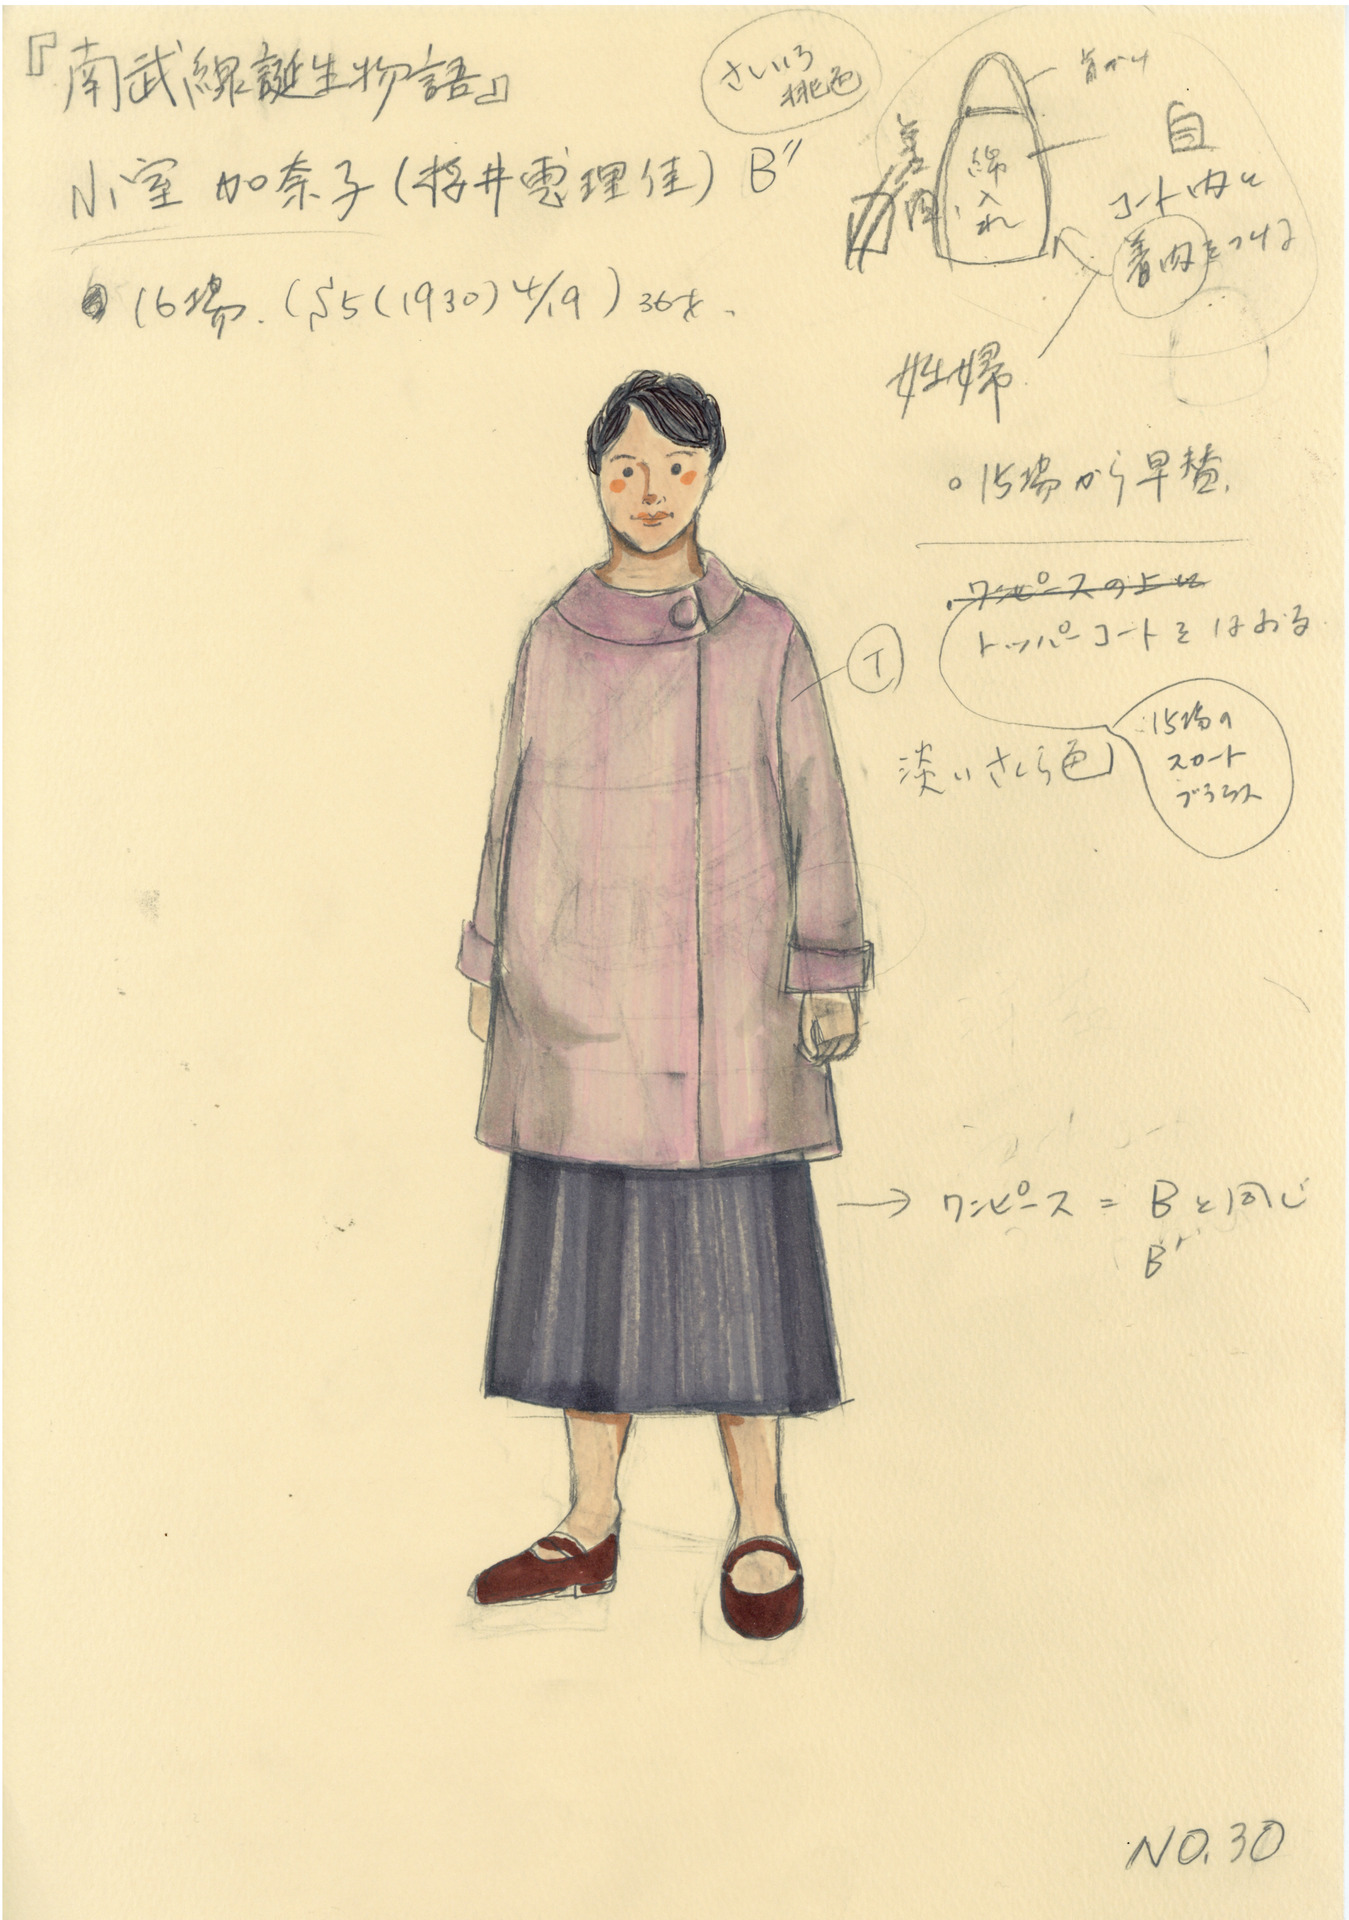 『南武線誕生物語』
小室 加奈子(桜井恵理佳) B''
16場.(S5(1930)4/19) 36才.
桃色
首かけ
綿
入れ
着肉
コート内に
着肉をつける
妊婦
○15場から早替.
・ワンピースの上に
トッパーコートをはおる
T
淡いさくら色
15場の
スカート
ブラウス
→ ワンピース = Bと同じ
B'
NO.30